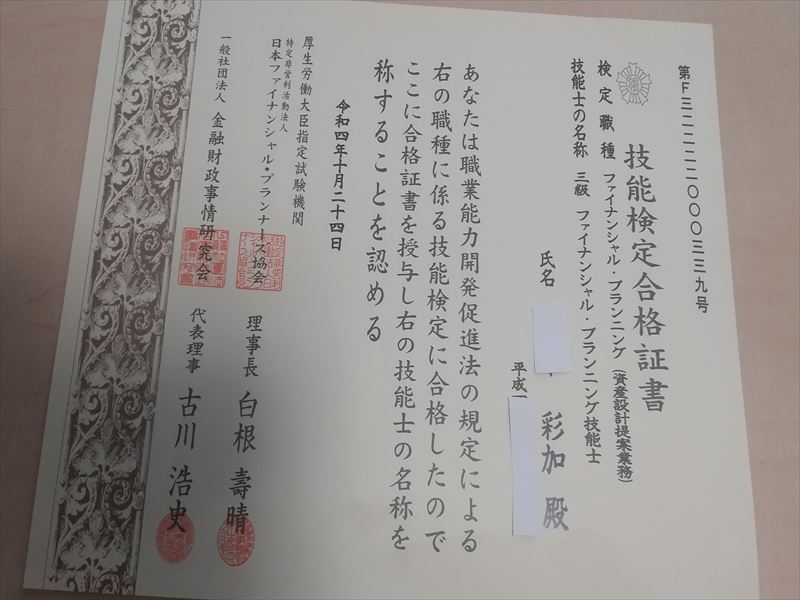 第F三二二二二〇〇〇三三九号
技能検定合格証書
検定職種 ファイナンシャル・プランニング(資産設計提案業務)
技能士の名称 三級 ファイナンシャル・プランニング技能士
氏名 彩加 殿
平成
あなたは職業能力開発促進法の規定による
右の職種に係る技能検定に合格したので
ここに合格証書を授与し右の技能士の名称を
称することを認める
令和四年十月二十四日
厚生労働大臣指定試験機関
特定非営利活動法人
日本ファイナンシャル・プランナーズ協会
理事長 白根 壽晴
一般社団法人 金融財政事情研究会
代表理事 古川 浩史